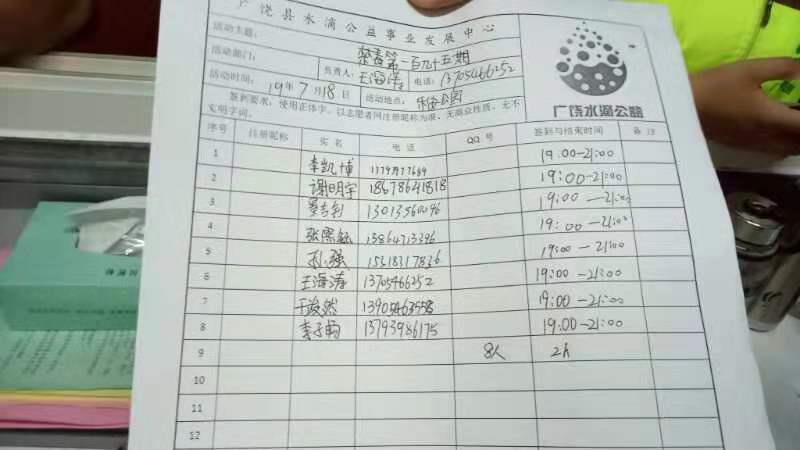 广饶县水滴公益事业发展中心
活动主题:
活动部门: 负责人:王海涛 电话:13705466252
活动时间:19年7月18日 活动地点:
签到要求:使用正体字,以志愿者网注册昵称为准,无商业性质、无不
文明字词。
广饶水滴公益
序号 注册昵称 实名 电话 QQ号 签到与结束时间 备注
1 李凯博 19:00-21:00
2 谢明宇 18678641818 19:00-21:00
3 19:00-21:00
4 19:00-21:00
5 孙强 19:00-21:00
6 王海涛 13705466252 19:00-21:00
7 于浚然 19:00-21:00
8 李子畅 13793986175 19:00-21:00
9 8人 2h
10
11
12